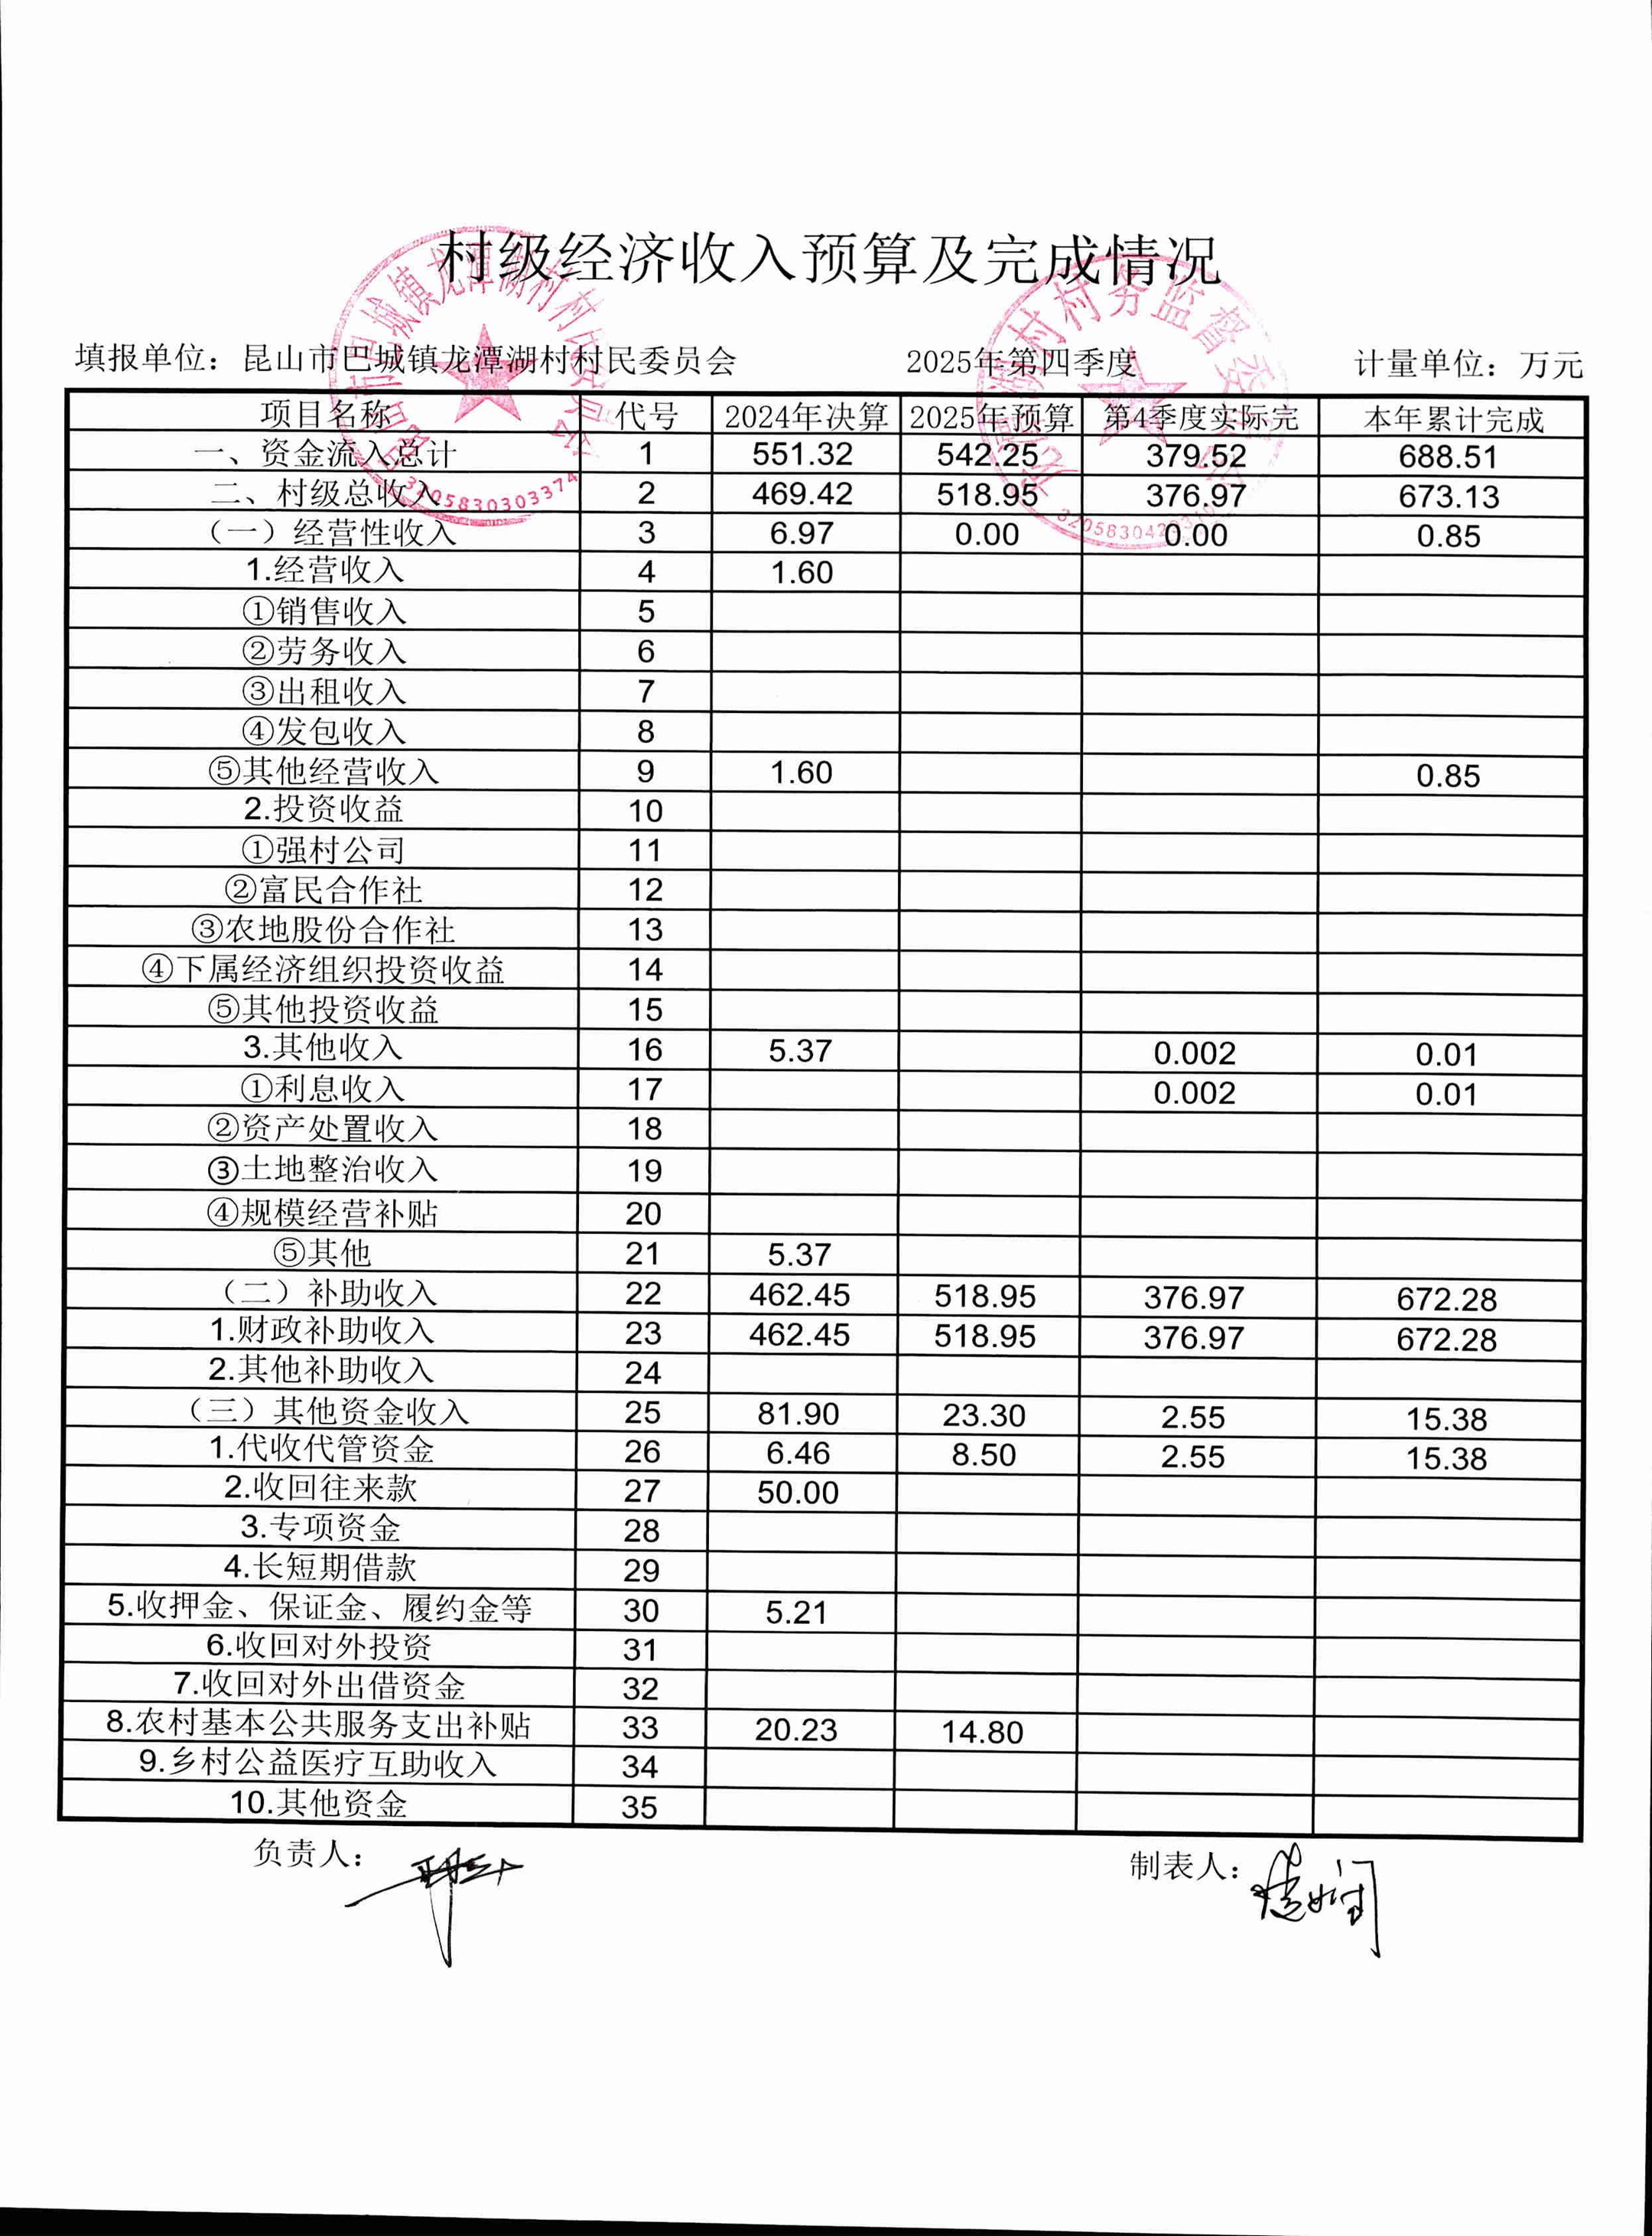 村级经济收入预算及完成情况
填报单位：昆山市巴城镇龙潭湖村村民委员会 2025年第四季度 计量单位：万元
项目名称 代号 2024年决算 2025年预算 第4季度实际完 本年累计完成
一、资金流入总计 1 551.32 542.25 379.52 688.51
二、村级总收入 2 469.42 518.95 376.97 673.13
（一）经营性收入 3 6.97 0.00 0.00 0.85
1.经营收入 4 1.60
①销售收入 5
②劳务收入 6
③出租收入 7
④发包收入 8
⑤其他经营收入 9 1.60 0.85
2.投资收益 10
①强村公司 11
②富民合作社 12
③农地股份合作社 13
④下属经济组织投资收益 14
⑤其他投资收益 15
3.其他收入 16 5.37 0.002 0.01
①利息收入 17 0.002 0.01
②资产处置收入 18
③土地整治收入 19
④规模经营补贴 20
⑤其他 21 5.37
（二）补助收入 22 462.45 518.95 376.97 672.28
1.财政补助收入 23 462.45 518.95 376.97 672.28
2.其他补助收入 24
（三）其他资金收入 25 81.90 23.30 2.55 15.38
1.代收代管资金 26 6.46 8.50 2.55 15.38
2.收回往来款 27 50.00
3.专项资金 28
4.长短期借款 29
5.收押金、保证金、履约金等 30 5.21
6.收回对外投资 31
7.收回对外出借资金 32
8.农村基本公共服务支出补贴 33 20.23 14.80
9.乡村公益医疗互助收入 34
10.其他资金 35
负责人： 制表人：
3205830303374